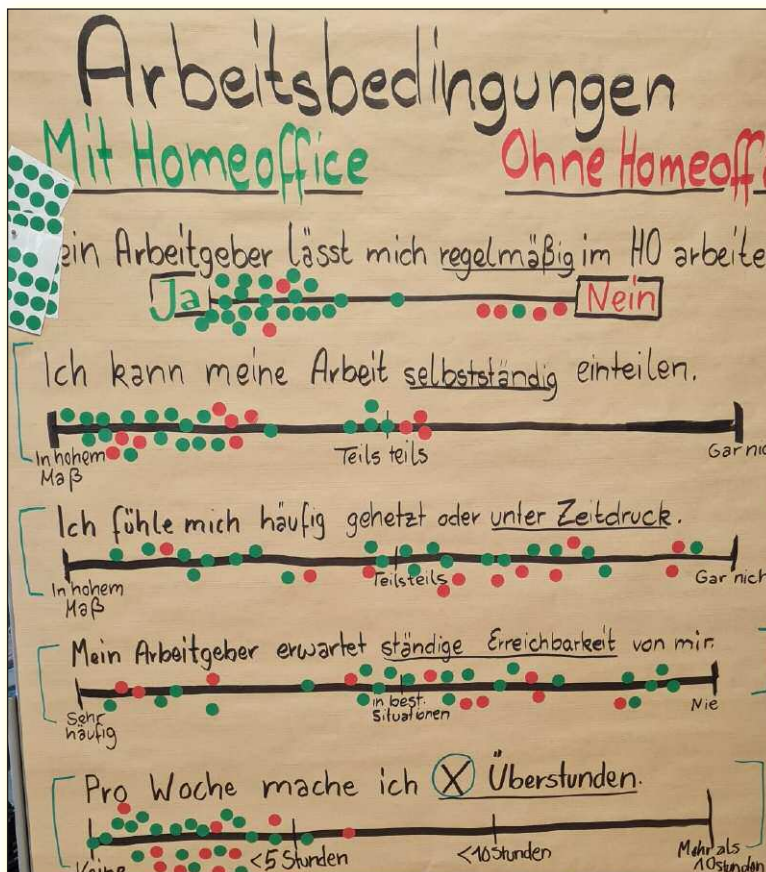 Arbeitsbedingungen
Mit Homeoffice Ohne Homeoff
ein Arbeitgeber lässt mich regelmäßig im HO arbeite
Ja Nein
Ich kann meine Arbeit selbstständig einteilen.
In hohem Maß Teils teils Gar nic
Ich fühle mich häufig gehetzt oder unter Zeitdruck.
In hohem Maß Teils teils Gar nich
Mein Arbeitgeber erwartet ständige Erreichbarkeit von mir.
Sehr häufig in best. Situationen Nie
Pro Woche mache ich X Überstunden.
Keine <5 Stunden <10 Stunden Mehr als 10 Stunden